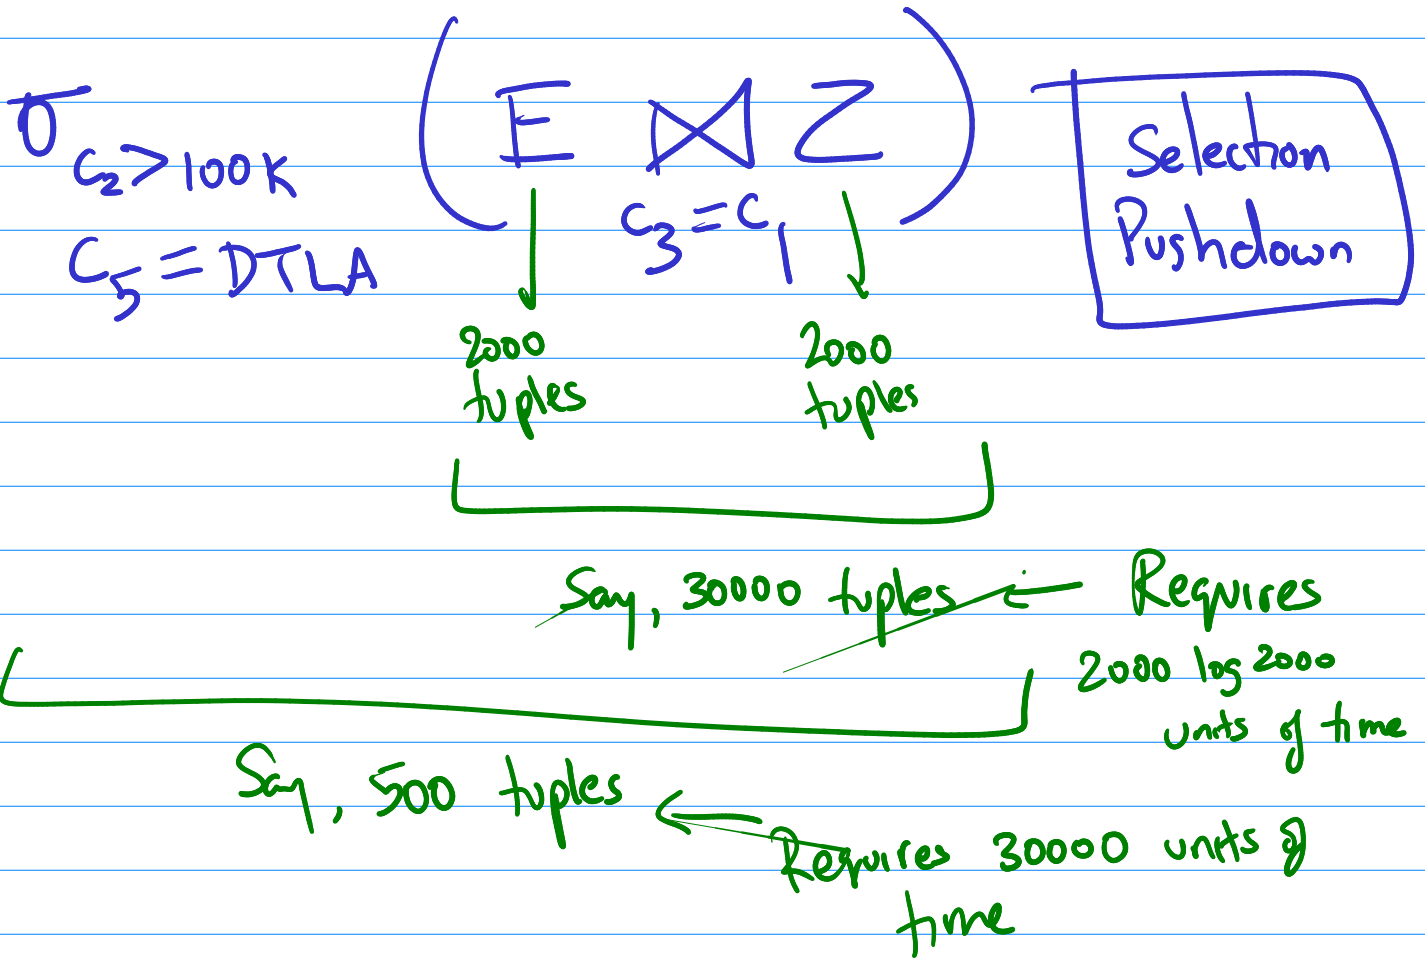 σ ( E ⋈ Z )
C₂ > 100K
C₅ = DTLA
C₃ = C₁
Selection
Pushdown
2000
tuples
2000
tuples
Say, 30000 tuples ← Requires
2000 log 2000
units of time
Say, 500 tuples
← Requires 30000 units of
time